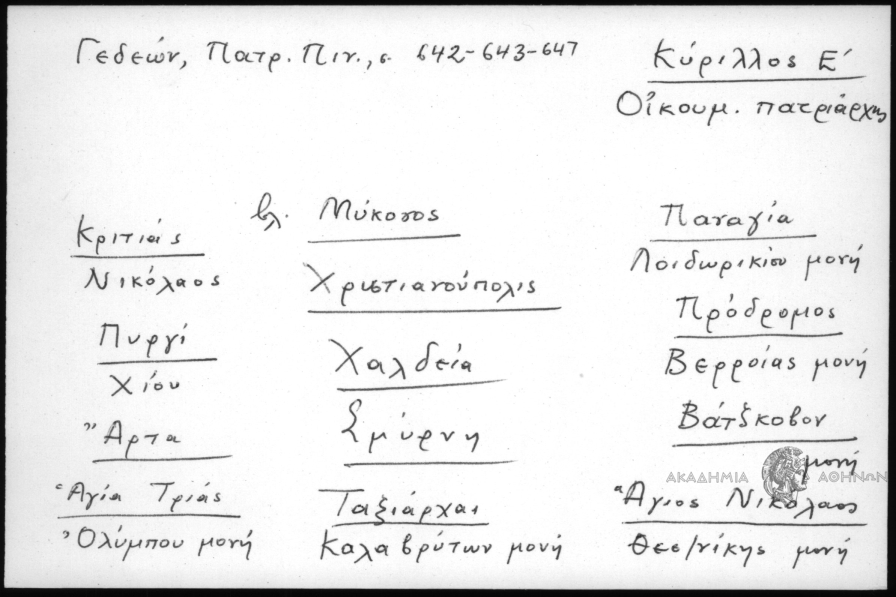 Γεδεών, Πατρ. Πιν., σ. 642-643-647
Κύριλλος Ε΄
Οἰκουμ. πατριάρχης
Κριτιάς
Νικόλαος
Πυργί
Χίου
Ἄρτα
Ἁγία Τριάς
Ὀλύμπου μονή
βλ. Μύκονος
Χριστιανούπολις
Χαλδεία
Σμύρνη
Ταξιάρχαι
Καλαβρύτων μονή
Παναγία
Λοιδωρικίου μονή
Πρόδρομος
Βερροίας μονή
Βάτζκοβον
μονή
ΑΚΑΔΗΜΙΑ ΑΘΗΝΩΝ
Ἅγιος Νικόλαος
Θεσ/νίκης μονή